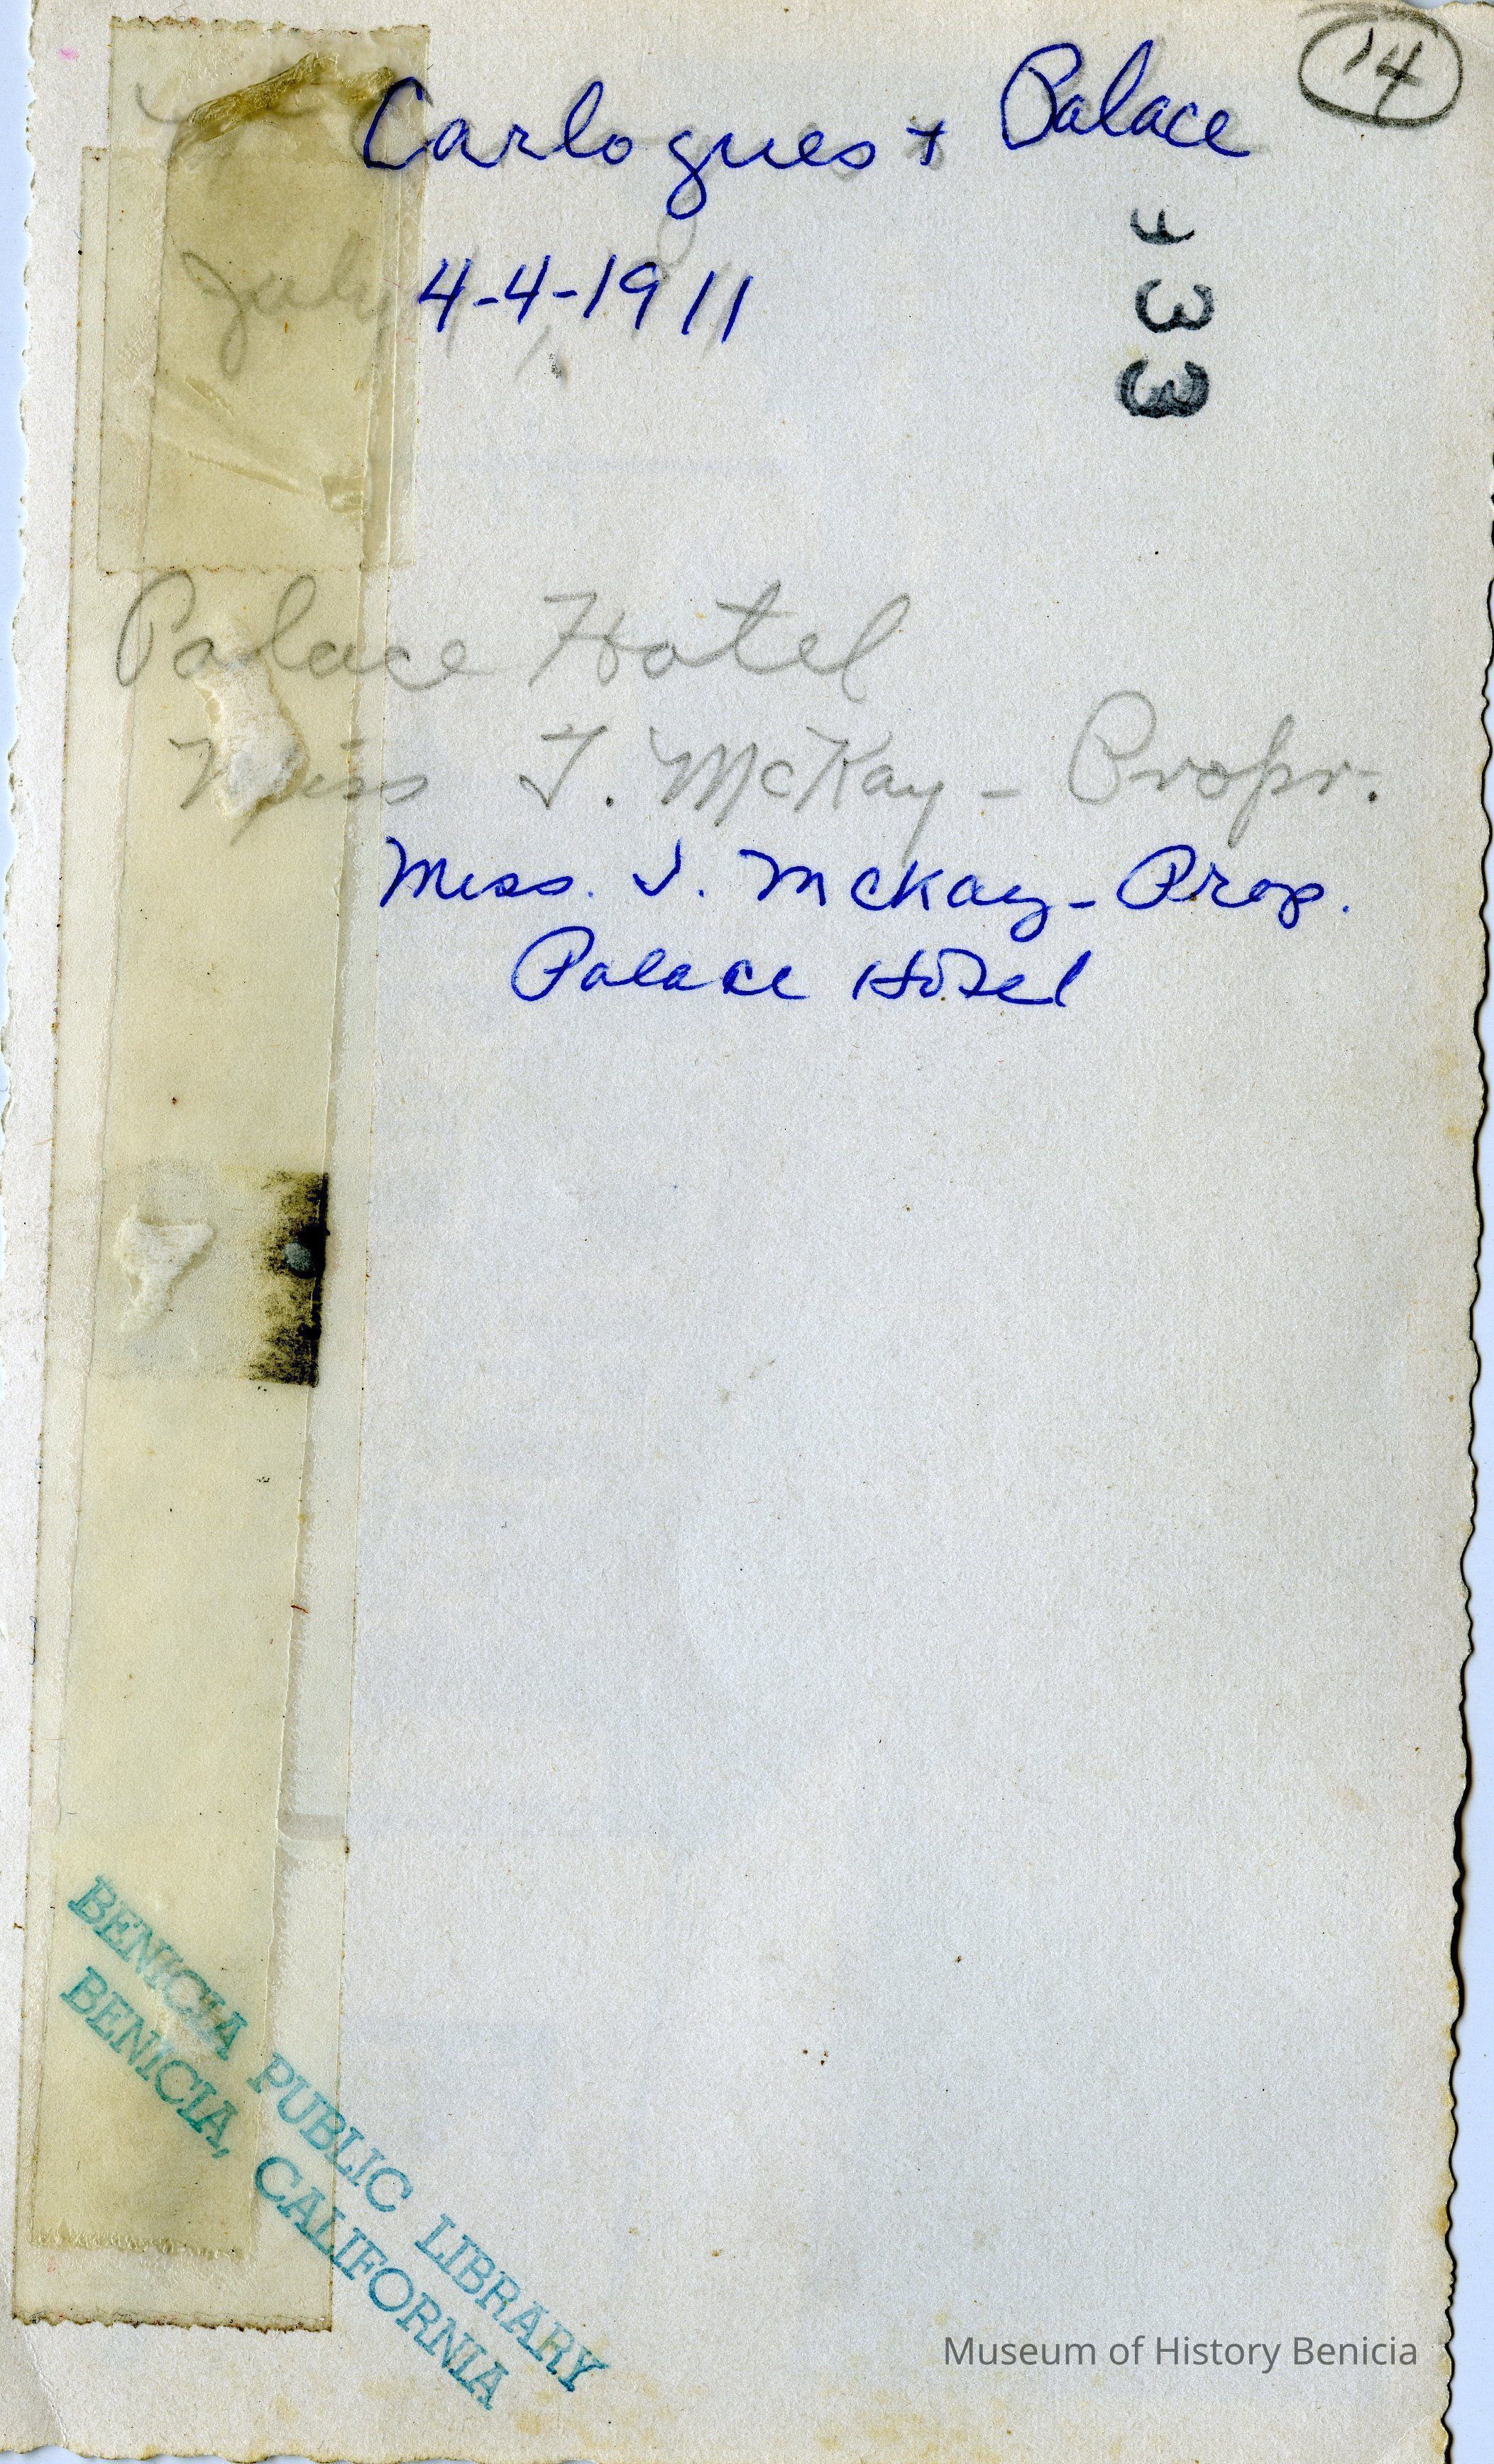 14
Carlogues + Palace
July 4-4-1911
Palace Hotel
Miss J. McKay - Propr.
Miss. J. McKay - Prop.
Palace Hotel
BENICIA PUBLIC LIBRARY
BENICIA, CALIFORNIA
Museum of History Benicia